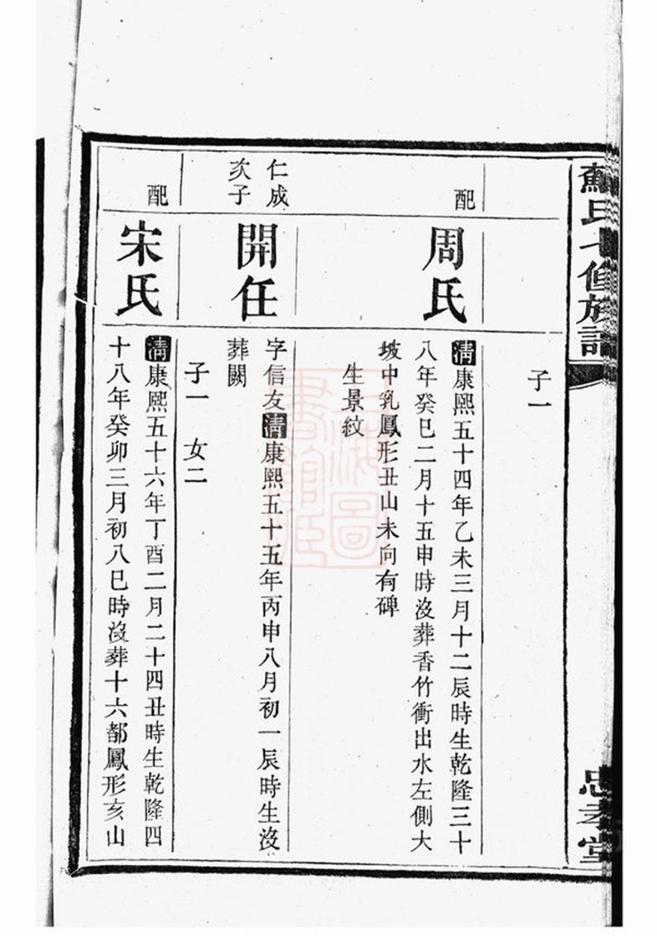 蘇氏七修族譜
忠孝堂
子一
配
周氏
清康熙五十四年乙未三月十二辰時生乾隆三十
八年癸巳二月十五申時沒葬香竹衝出水左側大
坡中乳鳳形丑山未向有碑
生景紋
仁成
次子
開任
字信友清康熙五十五年丙申八月初一辰時生沒
葬闕
子一 女二
配
宋氏
清康熙五十六年丁酉二月二十四丑時生乾隆四
十八年癸卯三月初八巳時沒葬十六都鳳形亥山